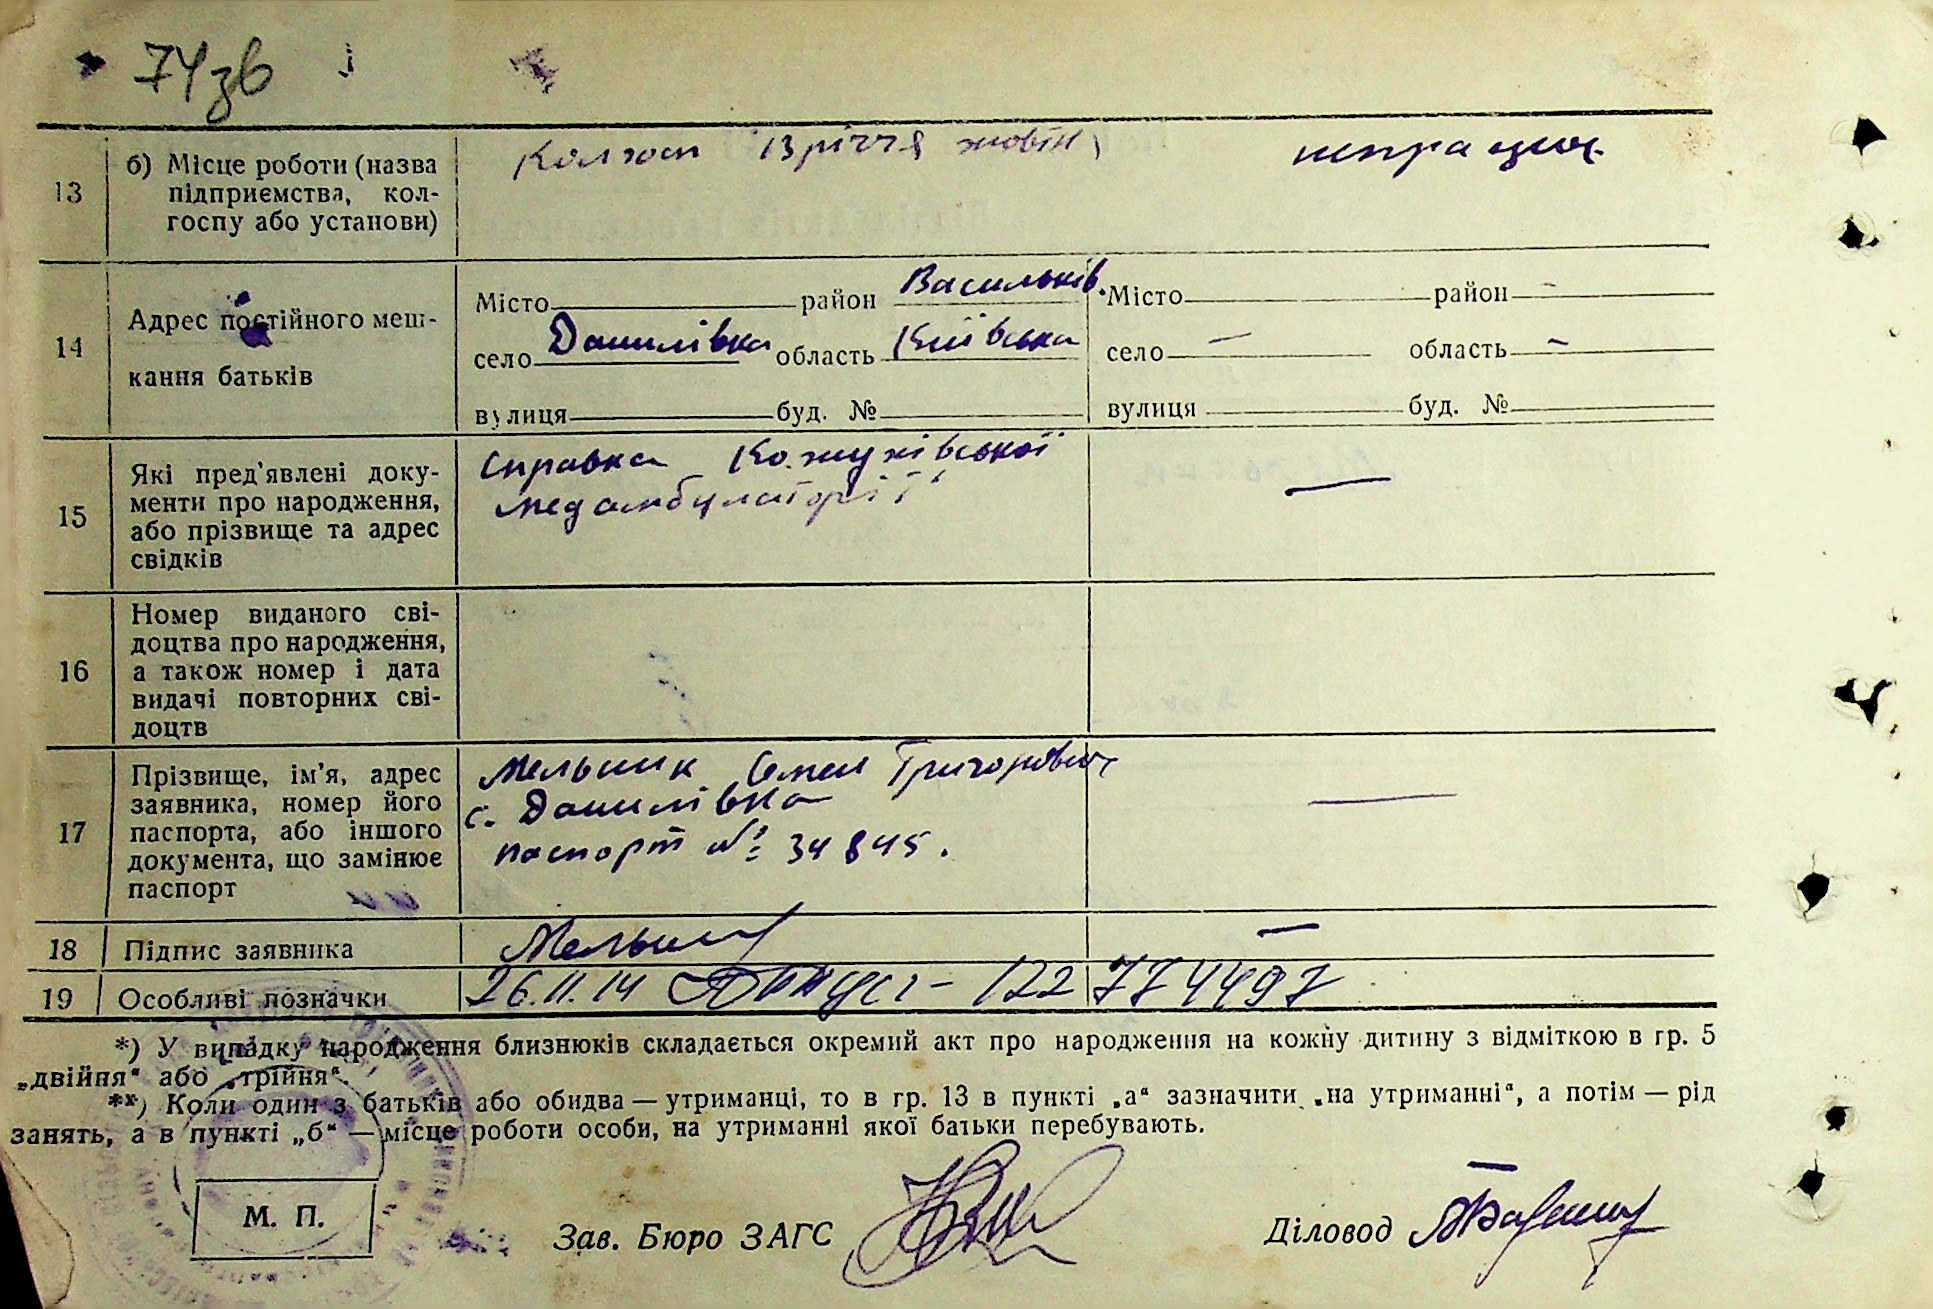 74зв
13
б) Місце роботи (назва
підприємства, кол-
госпу або установи)
Колгосп 13 річчя жовтн,
непрацює.
14
Адрес постійного меш-
кання батьків
Місто район Васильків. Місто район –
село Данилівка область Київська село – область –
вулиця буд. № вулиця буд. №
15
Які пред'явлені доку-
менти про народження,
або прізвище та адрес
свідків
Справка Кожухівської
медамбулаторії
—
16
Номер виданого сві-
доцтва про народження,
а також номер і дата
видачі повторних сві-
доцтв
17
Прізвище, ім'я, адрес
заявника, номер його
паспорта, або іншого
документа, що замінює
паспорт
Мельник Семен Григорович
с. Данилівка
паспорт № 34845.
—
18 Підпис заявника
Мельник –
19 Особливі позначки
26.11.14 122 774497
*) У випадку народження близнюків складається окремий акт про народження на кожну дитину з відміткою в гр. 5
„двійня“ або „трійня“.
**) Коли один з батьків або обидва — утриманці, то в гр. 13 в пункті „а“ зазначити „на утриманні“, а потім — рід
занять, а в пункті „б“ — місце роботи особи, на утриманні якої батьки перебувають.
М. П.
Зав. Бюро ЗАГС
Діловод